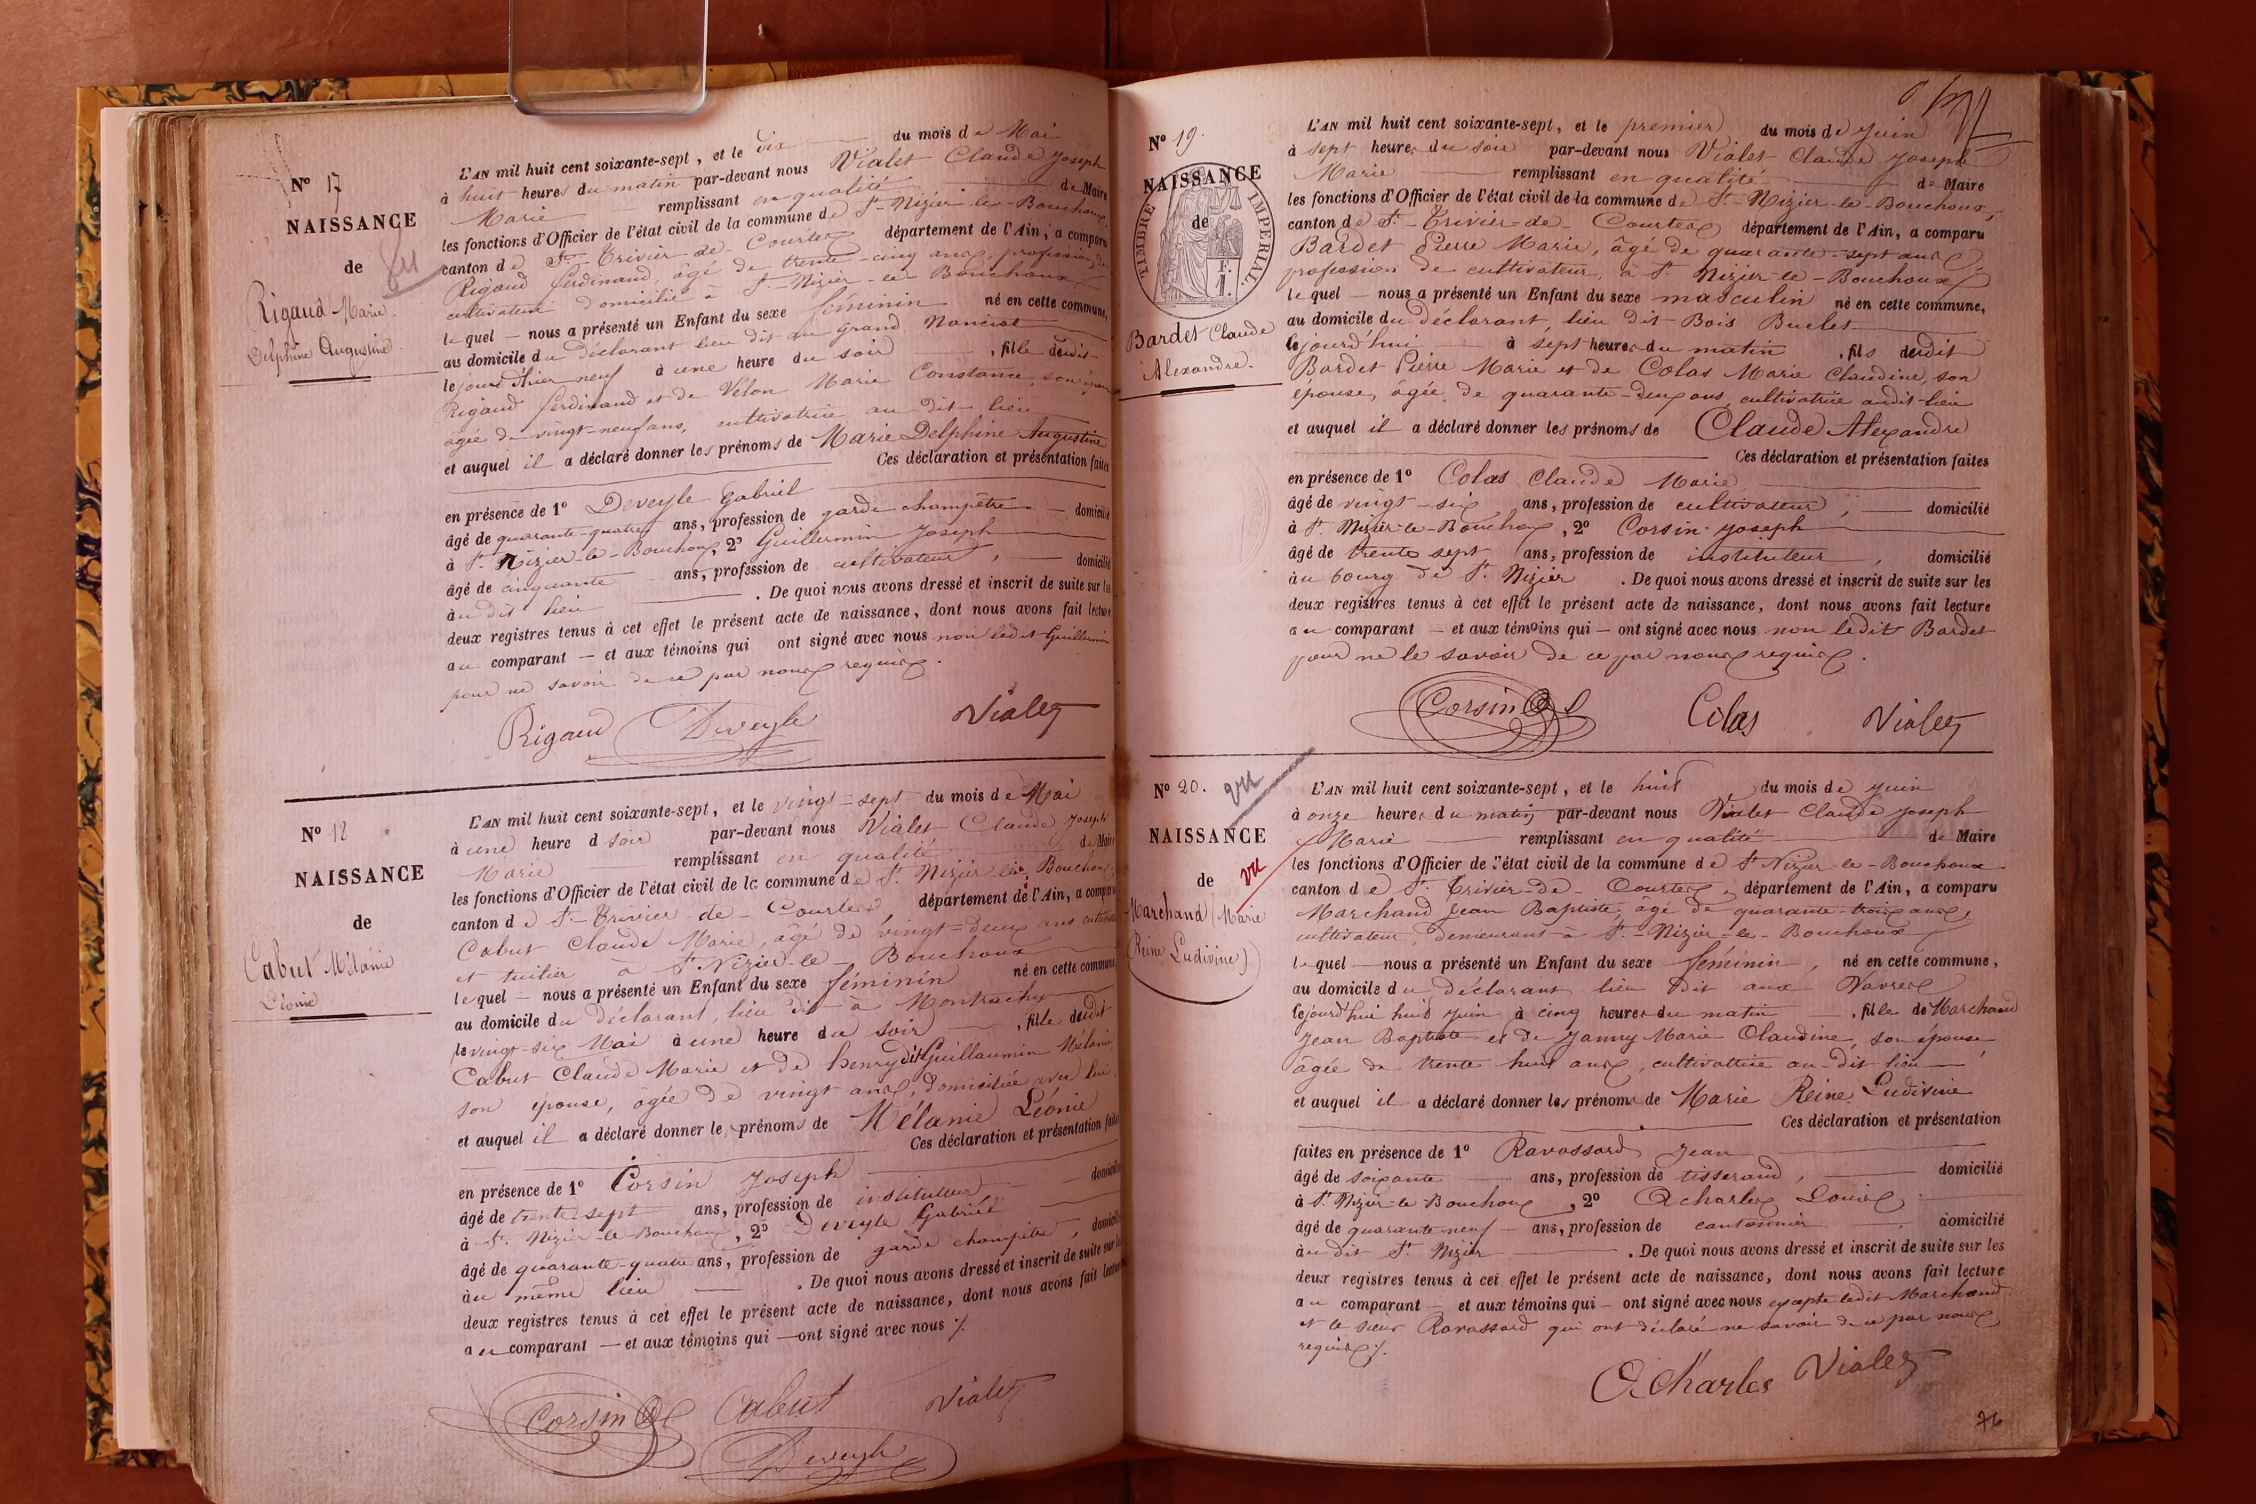 Nº 17
NAISSANCE
de
vu
Rigaud Marie
Delphine Augustine
L'AN mil huit cent soixante-sept, et le dix du mois de Mai
à huit heures du matin par-devant nous Vialet Claude Joseph
Marie remplissant en qualité de Maire
les fonctions d'Officier de l'état civil de la commune de St-Nizier-le-Bouchoux
canton de St-Trivier-de-Courtes département de l'Ain, a comparu
Rigaud Ferdinand, âgé de trente-cinq ans, profession de
cultivateur domicilié à St-Nizier-le-Bouchoux
lequel — nous a présenté un Enfant du sexe féminin né en cette commune,
au domicile du déclarant lieu dit au Grand
le jour d'hier neuf à une heure du soir, fille dudit
Rigaud Ferdinand et de Velon Marie Constance, son épouse
âgée de vingt-neuf ans, cultivatrice au dit lieu
et auquel il a déclaré donner les prénoms de Marie Delphine Augustine
Ces déclaration et présentation faites
en présence de 1º Deveyle Gabriel
âgé de quarante-quatre ans, profession de garde champêtre — domicilié
à St-Nizier-le-Bouchoux, 2º Guillermin Joseph
âgé de cinquante ans, profession de cultivateur, — domicilié
au dit lieu. De quoi nous avons dressé et inscrit de suite sur les
deux registres tenus à cet effet le présent acte de naissance, dont nous avons fait lecture
au comparant — et aux témoins qui ont signé avec nous non ledit Guillermin
pour ne savoir de ce par nous requis.
Rigaud Deveyle Vialet
Nº 18
NAISSANCE
de
Cabut Mélanie
Léonie
L'AN mil huit cent soixante-sept, et le vingt-sept du mois de Mai
à une heure d soir par-devant nous Vialet Claude Joseph
Marie remplissant en qualité de Maire
les fonctions d'Officier de l'état civil de la commune de St-Nizier-le-Bouchoux
canton de St-Trivier-de-Courtes département de l'Ain, a comparu
Cabut Claude Marie, âgé de vingt-deux ans cultivateur
et tuilier à St-Nizier-le-Bouchoux
lequel — nous a présenté un Enfant du sexe féminin né en cette commune
au domicile du déclarant, lieu dit à Montrachy
le vingt-six Mai à une heure du soir —, fille dudit
Cabut Claude Marie et de henry dit Guillaumin Mélanie
son épouse, âgée de vingt ans, domiciliée avec lui
et auquel il a déclaré donner les prénoms de Mélanie Léonie
Ces déclaration et présentation faites
en présence de 1º Corsin Joseph
âgé de trente-sept ans, profession de instituteur domicilié
à St-Nizier-le-Bouchoux, 2º Deveyle Gabriel
âgé de quarante-quatre ans, profession de garde champêtre, domicilié
au même lieu. De quoi nous avons dressé et inscrit de suite sur les
deux registres tenus à cet effet le présent acte de naissance, dont nous avons fait lecture
au comparant — et aux témoins qui — ont signé avec nous ./.
Corsin Cabut Vialet
Deveyle
Nº 19.
NAISSANCE
de
TIMBRE IMPERIAL.
Bardet Claude
Alexandre.
L'AN mil huit cent soixante-sept, et le premier du mois de Juin
à sept heures du soir par-devant nous Vialet Claude Joseph
Marie remplissant en qualité de Maire
les fonctions d'Officier de l'état civil de la commune de St-Nizier-le-Bouchoux,
canton de St-Trivier-de-Courtes département de l'Ain, a comparu
Bardet Pierre Marie, âgé de quarante-sept ans,
profession de cultivateur, à St Nizier-le-Bouchoux
lequel — nous a présenté un Enfant du sexe masculin né en cette commune,
au domicile du déclarant, lieu dit Bois Buclet
cejourd'hui à sept heures du matin, fils dudit
Bardet Pierre Marie et de Colas Marie Claudine, son
épouse, âgée de quarante-deux ans cultivatrice audit-lieu
et auquel il a déclaré donner les prénoms de Claude Alexandre
Ces déclaration et présentation faites
en présence de 1º Colas Claude Marie
âgé de vingt-six ans, profession de cultivateur, — domicilié
à St Nizier-le-Bouchoux, 2º Corsin Joseph
âgé de trente sept ans, profession de instituteur, domicilié
au bourg de St Nizier. De quoi nous avons dressé et inscrit de suite sur les
deux registres tenus à cet effet le présent acte de naissance, dont nous avons fait lecture
au comparant — et aux témoins qui — ont signé avec nous non ledit Bardet
pour ne le savoir de ce par nous requis.
Corsin Colas Vialet
Nº 20.
vu
NAISSANCE
de
vu
Marchand (Marie
Reine Ludivine)
L'AN mil huit cent soixante-sept, et le huit du mois de Juin
à onze heures du matin par-devant nous Vialet Claude Joseph
Marie remplissant en qualité de Maire
les fonctions d'Officier de l'état civil de la commune de St Nizier-le-Bouchoux
canton de St-Trivier-de-Courtes, département de l'Ain, a comparu
Marchand Jean Baptiste, âgé de quarante-trois ans,
cultivateur, demeurant à St-Nizier-le-Bouchoux
lequel — nous a présenté un Enfant du sexe féminin, né en cette commune,
au domicile du déclarant lieu dit aux
cejourd'hui huit Juin à cinq heures du matin —, fille de Marchand
Jean Baptiste et de Janny Marie Claudine, son épouse
âgée de trente huit ans, cultivatrice au-dit lieu
et auquel il a déclaré donner les prénoms de Marie Reine Ludivine
Ces déclaration et présentation
faites en présence de 1º Ravassard Jean
âgé de soixante ans, profession de tisserand, domicilié
à St-Nizier-le Bouchoux, 2º Acharles Louis
âgé de quarante neuf — ans, profession de cantonnier, domicilié
au dit St Nizier. De quoi nous avons dressé et inscrit de suite sur les
deux registres tenus à cet effet le présent acte de naissance, dont nous avons fait lecture
au comparant — et aux témoins qui — ont signé avec nous excepté ledit Marchand
et le sieur Ravassard qui ont déclaré ne savoir de ce par nous
requis ./.
Acharles Vialet
76